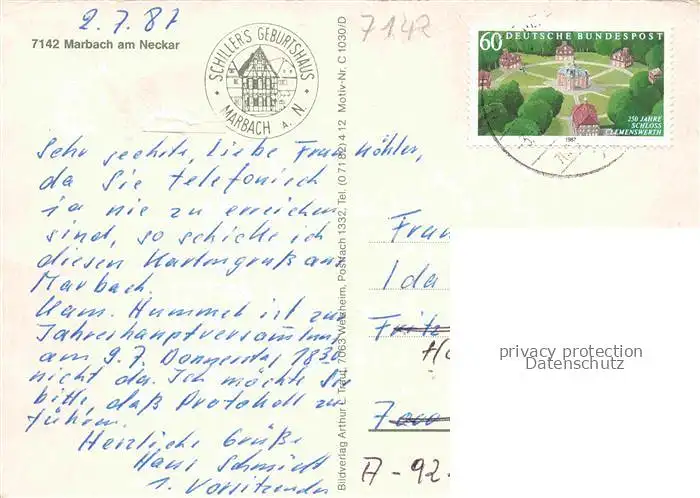 2.7.87
7142
7142 Marbach am Neckar
SCHILLERS GEBURTSHAUS
MARBACH a. N.
60 DEUTSCHE BUNDESPOST
250 JAHRE
SCHLOSS
CLEMENSWERTH
1987
Sehr geehrte, liebe Frau Köhler,
da Sie telefonisch
ja nie zu erreichen
sind, so schicke ich
diesen Kartengruß aus
Marbach.
Kam. Hummel ist zur
Jahreshauptversammlung
am 9.7. Donnerstag 18 30
nicht da. Ich möchte Sie
bitte, daß Protokoll zu
führen.
Herzliche Grüße
Hans Schmidt
1. Vorsitzender
Bildverlag Arthur F. Traut, 7063 Welzheim, Postfach 1332, Tel. (07182) 412 Motiv-Nr. C 1030/D
Frau
Ida
Fritz
Ho
7000
A-92-
privacy protection
Datenschutz